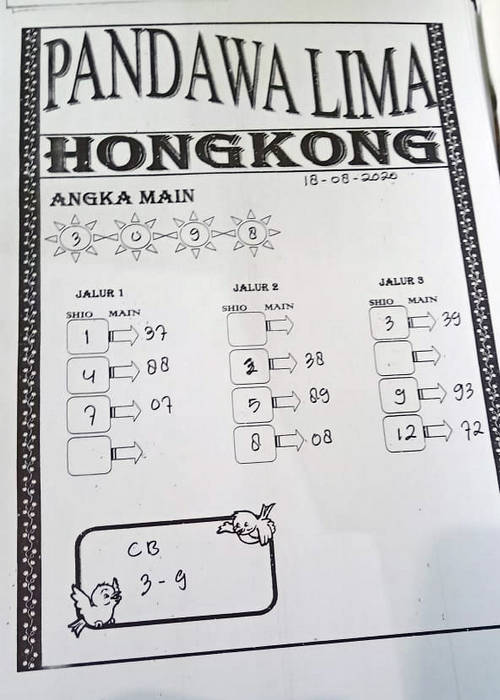 PANDAWA LIMA
HONGKONG
18-08-2020
ANGKA MAIN
3 0 9 8
JALUR 1
SHIO MAIN
1 37
4 88
7 07
JALUR 2
SHIO MAIN
2 38
5 89
8 08
JALUR 3
SHIO MAIN
3 39
9 93
12 72
CB
3-9